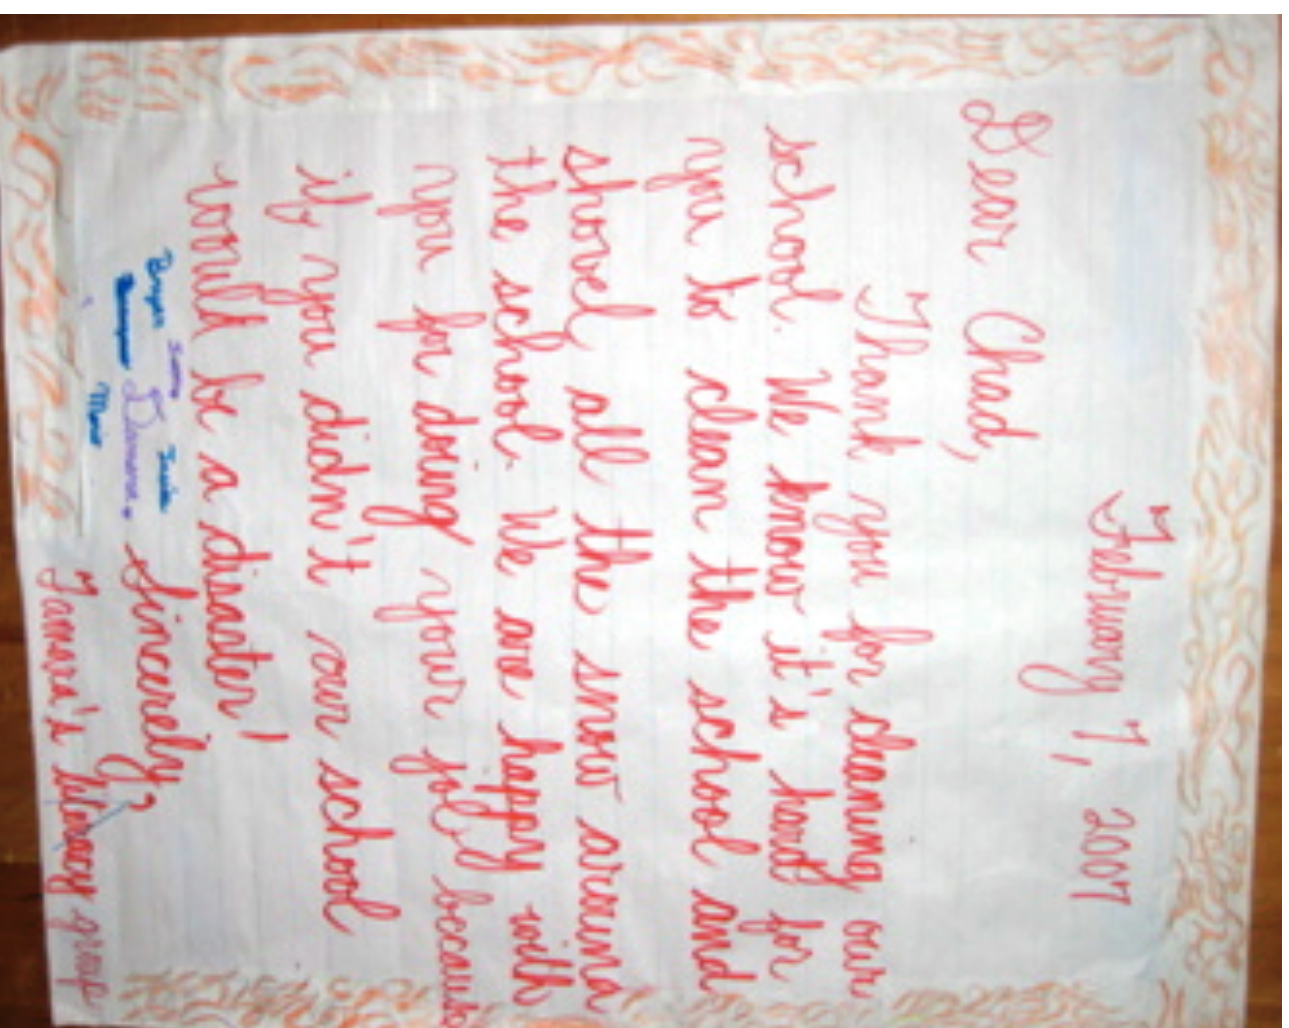 February 7, 2007
Dear Chad,
Thank you for cleaning our
school. We know it's hard for
you to clean the school and
shovel all the snow around
the school. We are happy with
you for doing your job because
if you didn't our school
would be a disaster!
Sincerely,
Tamara's literacy group